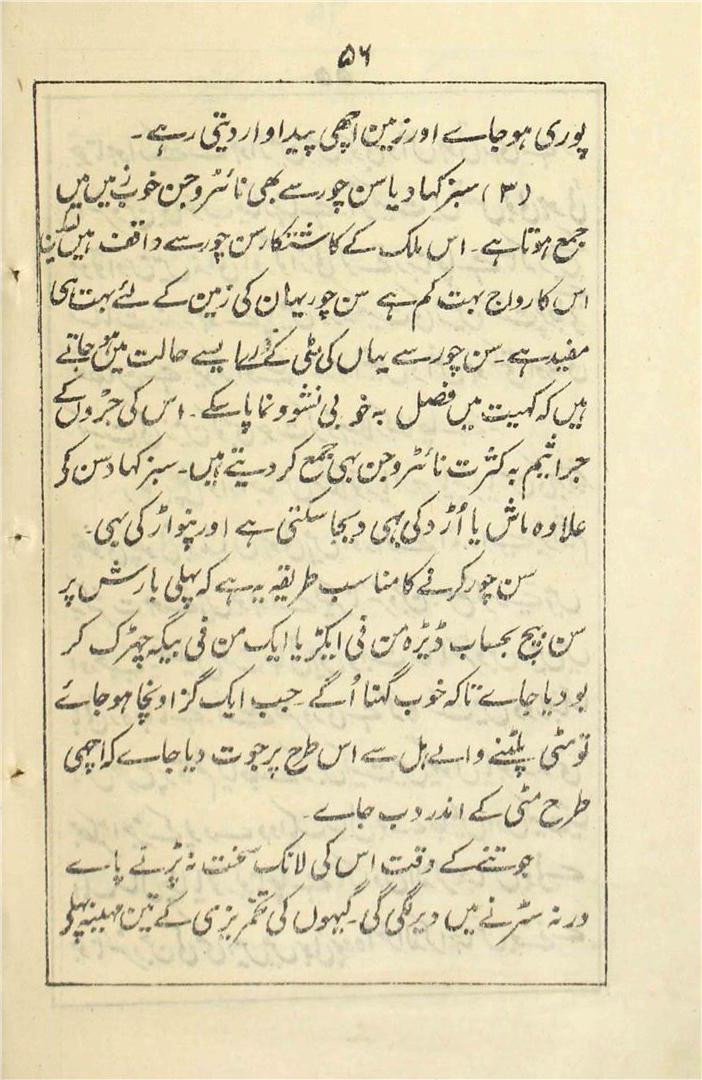 ۵۶
پوری ہو جاے اور زمین اچھی پیداوار دیتی رہے۔
(۳) سبز کہاد یا سن چور سے بھی نائٹروجن خوب زمین میں
جمع ہوتا ہے۔ اس ملک کے کاشتکار سن چور سے واقف ہیں لیکن
اس کا رواج بہت کم ہے سن چور یہان کی زمین کے لئے بہت ہی
مفید ہے۔ سن چور سے یہاں کی مٹی کے ذرے ایسے حالت میں ہو جاتے
ہیں کہ کہیت میں فصل بہ خوبی نشو و نما پا سکے۔ اس کی جڑوں کے
جراثیم بہ کثرت نائٹروجن بہی جمع کر دیتے ہیں۔ سبز کہاد سن کو
علاوہ ماش یا اُڑد کی بہی دیجا سکتی ہے اور پنواڑ کی بہی۔
سن چور کرنے کا مناسب طریقہ یہ ہے کہ پہلی بارش پر
سن بیج بحساب ڈیڑہ من فی ایکڑ یا ایک من فی بیگہ چہڑک کر
بو دیا جاے تاکہ خوب گہنا اُگے۔ جب ایک گز اونچا ہو جائے
تو مٹی پلٹنے والے ہل سے اس طرح پر جوت دیا جاے کہ اچھی
طرح مٹی کے اندر دب جاے۔
جوتنے کے وقت اس کی لانک سخت نہ پڑنے پاے
ورنہ سڑنے میں دیر لگی گی۔ گیہوں کی تخمریزی کے تین مہینہ پہلے